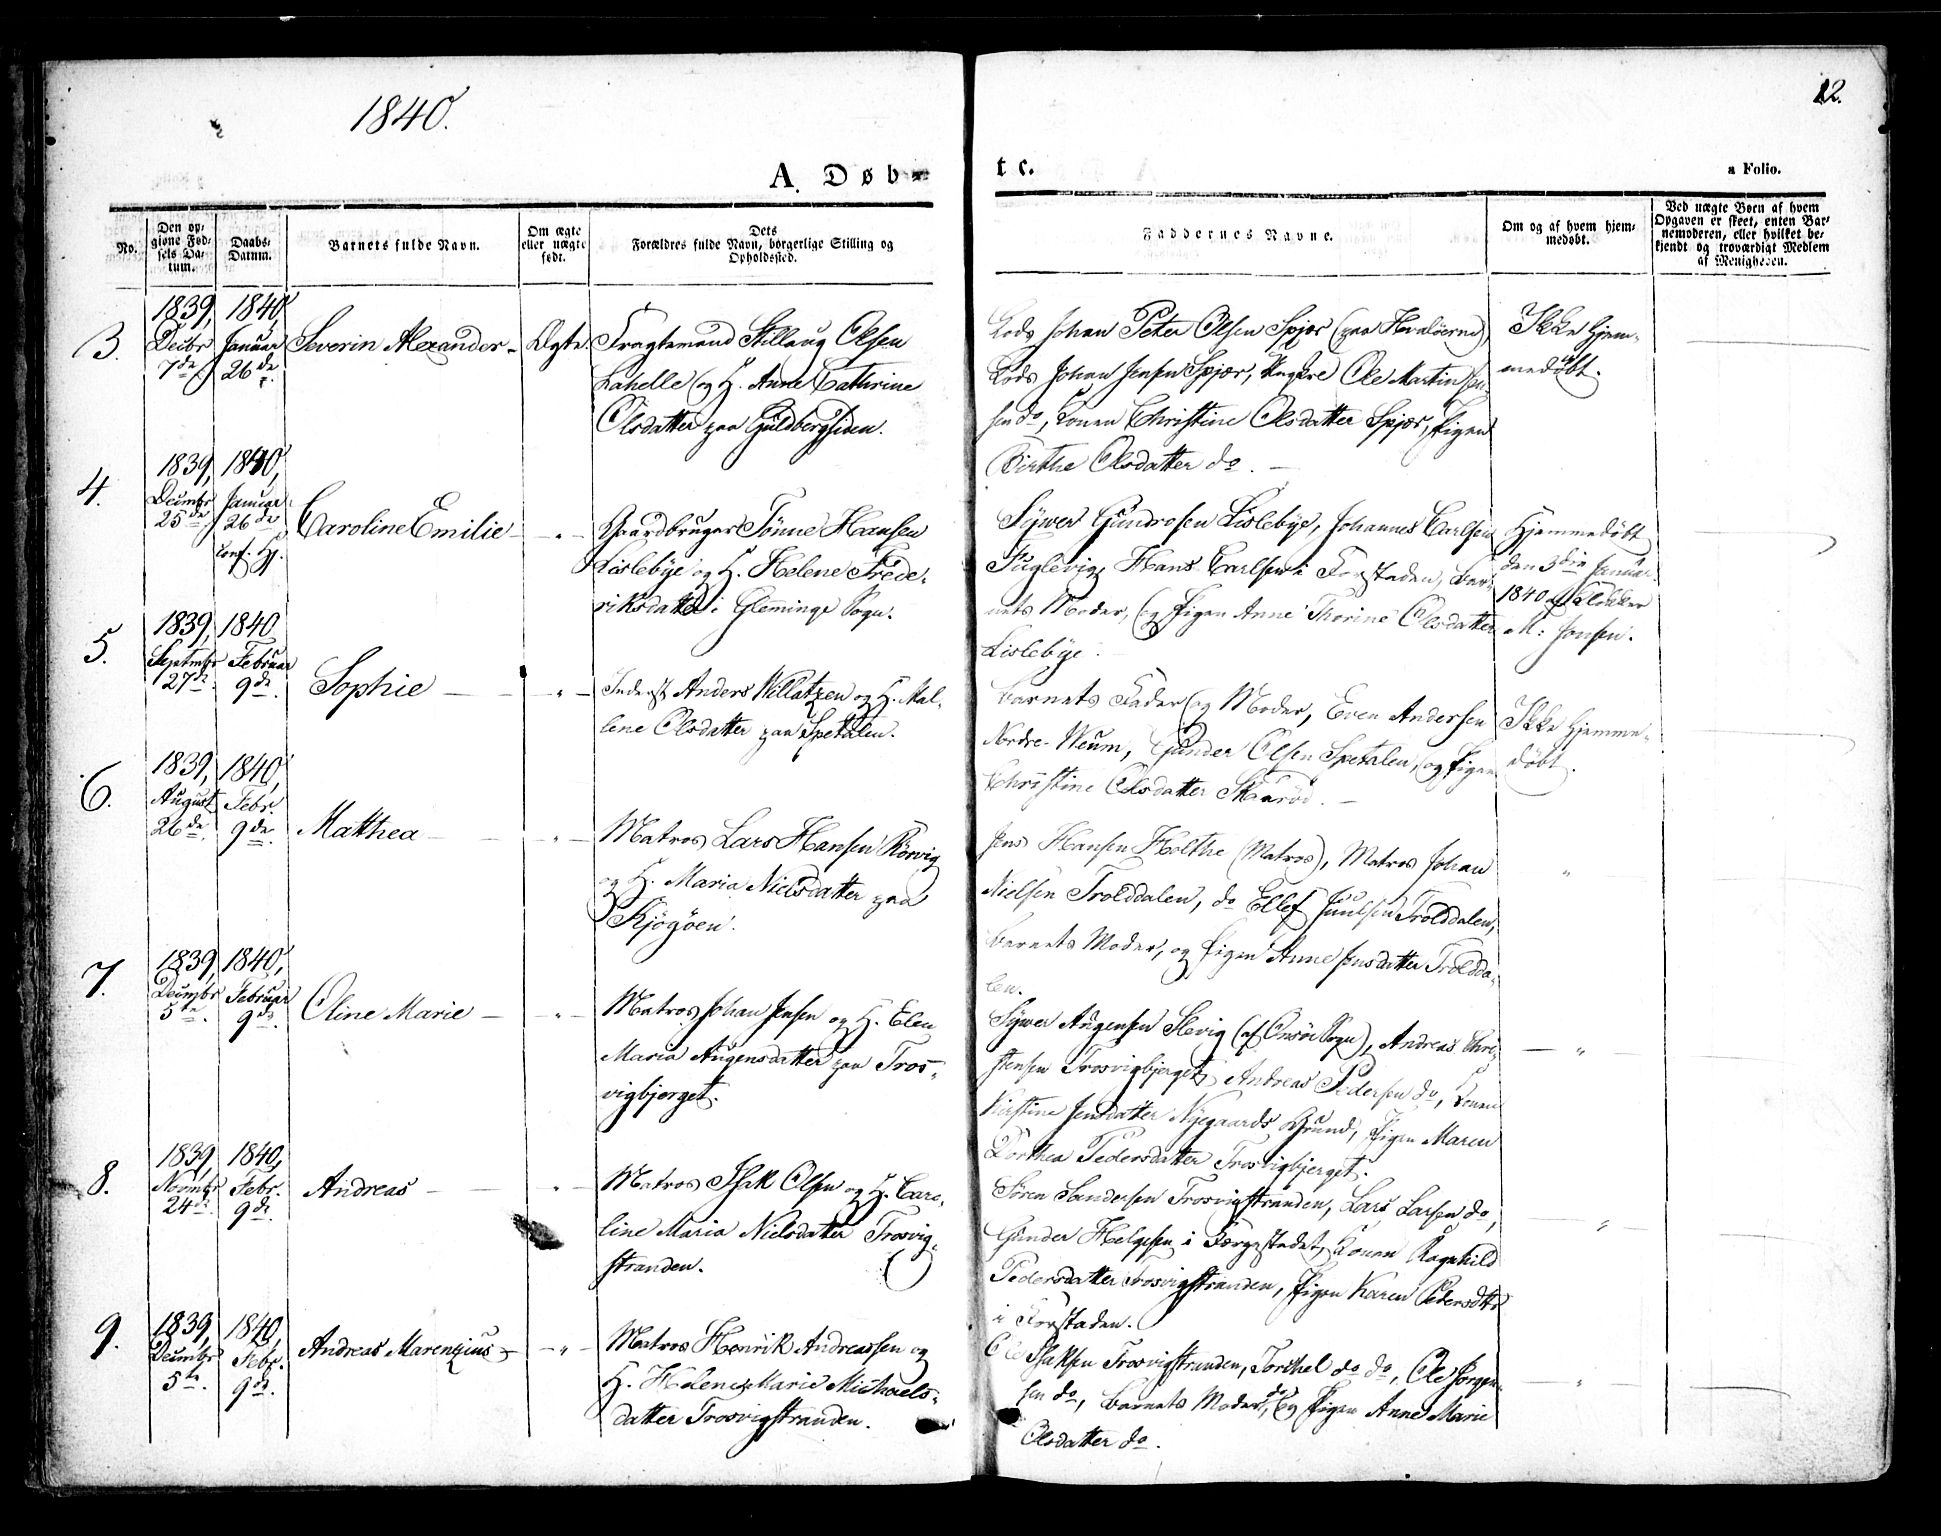 1840.
12.
A. Døb-
te.
a Folio.
No.
Den op-
givne Fød-
sels Da-
tum.
Daabs-
Datum.
Barnets fulde Navn.
Om ægte
eller uægte
født.
Dets
Forældres fulde Navn, borgerlige Stilling og
Opholdssted.
Faddernes Navne.
Om og af hvem hjem-
medøbt.
Ved uægte Børn af hvem
Opgaven er skeet, enten Bar-
nemoderen, eller hvilket be-
kjendt og troværdigt Medlem
af Menigheden.
3.
1839,
Decbr
7de
1840
Januar
26de
Severin Alexander -
Ægte
Fragtemand Stillaug Olsen
Lahelle og H. Anne Cathrine
Olsdatter paa Guldbergsiden.
Lods Johan Peter Olsen Spjær (paa Hvaløerne)
Lods Johan Jensen Spjær, Ungkre Ole Martin Jen-
sen do, Konen Christine Olsdatter Spjær, Pigen
Birthe Olsdatter do. -
Ikke hjem-
medøbt.
4.
1839,
Decembr
25de
1840,
Januar
26de
conf. Hj.
Caroline Emilie -
- " -
Gaardbruger Tønne Hansen
Lislebye og H. Helene Frede-
riksdatter i Glemminge Sogn.
Syver Gundrosen Lislebye, Johannes Carlsen
Fuglevig, Hans Carlsen i Forstaden, Bar-
nets Moder, og Pigen Anne Thorine Olsdatter
Lislebye.
Hjemmedøbt
den 3die Januar
1840 af Klokker
M: Jonsen.
5.
1839,
Septmbr
27de
1840
Februar
9de
Sophie -
- " -
Inderst Anders Willatzen og H. Mal-
lene Olsdatter paa Spetalen.
Barnets Fader og Moder, Even Andersen
Nordre-Weum, Gunder Olsen Spetalen, og Pigen
Christine Olsdatter Skaarød. -
Ikke hjemme-
døbt.
6.
1839,
August
26de
1840,
Febr.
9de
Matthea -
- " -
Matros Lars Hansen Rørvig
og H. Maria Nielsdatter paa
Kjøgøen.
Jens Hansen Holthe (Matros), Matros Johan
Nielsen Trolddalen, do Ellef Juulsen Trolddalen,
Barnets Moder, og Pigen Anne Jensdatter Trolda-
len.
"
7.
1839,
Decembr
5te
1840,
Februar
9de
Oline Marie -
- " -
Matros Johan Jensen og H. Elen
Maria Augensdatter paa Tros-
vigbjerget.
Syver Augensen Slevig (af Onsøe Sogn), Andreas Chri-
stensen Trosvigbjerget, Andreas Pedersen do, Konen
Kirstine Jensdatter Nyegaards Grund, Pigen Maren
Dorthea Pedersdatter Trosvigbjerget.
- " -
8.
1839,
Novmbr
24de
1840,
Febr.
9de
Andreas -
- " -
Matros Isak Olsen og H. Caro-
line Maria Nielsdatter Trosvig-
stranden.
Søren Sandersen Trosvigstranden, Lars Larsen do,
Gunder Helgesen i Færgestadet, Konen Ragnhild
Pedersdatter Trosvigstranden, Pigen Karen Pedersdtr
i Forstaden.
- " -
9.
1839,
Decembr
5te
1840,
Febr.
9de
Andreas Marenzius -
- " -
Matros Henrik Andreassen og
H. Helene Marie Michaels-
datter Trosvigstranden.
Ole Isaksen Trosvigstranden, Torkel do do, Ole Jørgen-
sen do, Barnets Moder do, og Pigen Anne Marie
Olsdatter do.
- " -